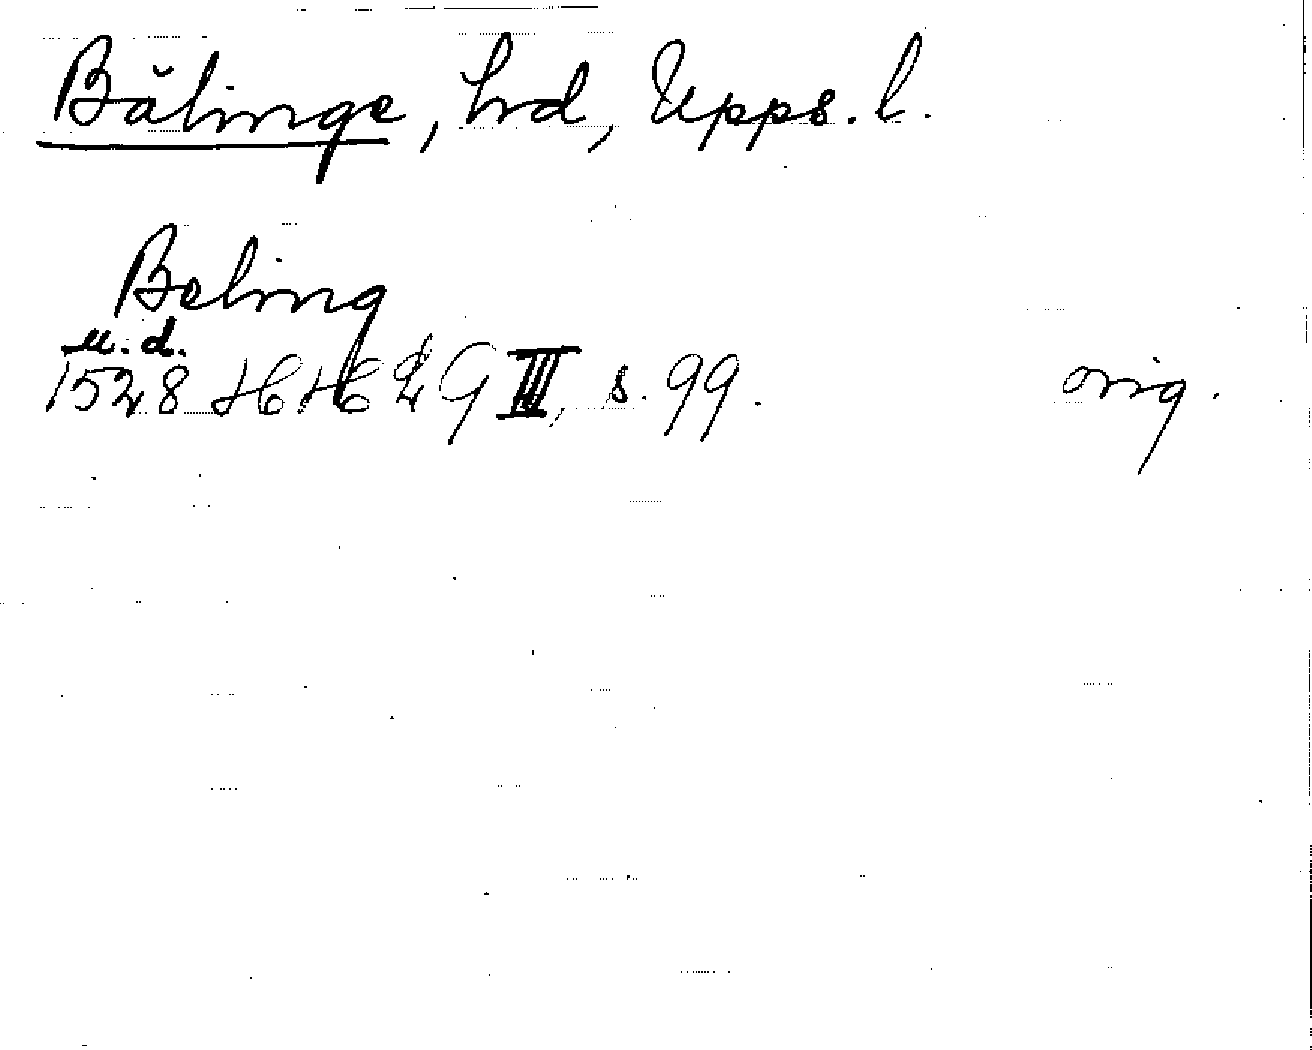 Bälinge, hrd, Upps. l.
Beling
u. d.
1528 HH 2 G III, s. 99. orig.